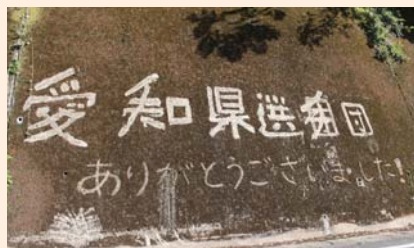 愛知県選手団
ありがとうございました!